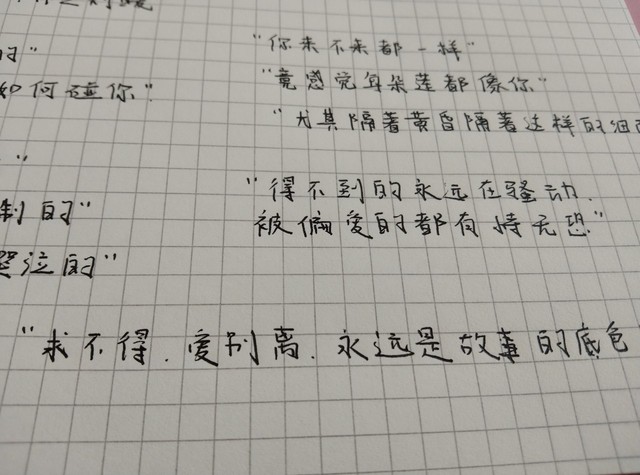 的"
如何碰你"
"
制的"
哭泣的"
"你来不来都一样"
"竟感觉每朵莲都像你"
"尤其隔著黄昏隔著这样的细雨
"得不到的永远在骚动.
被偏爱的都有恃无恐"
"求不得.爱别离.永远是故事的底色